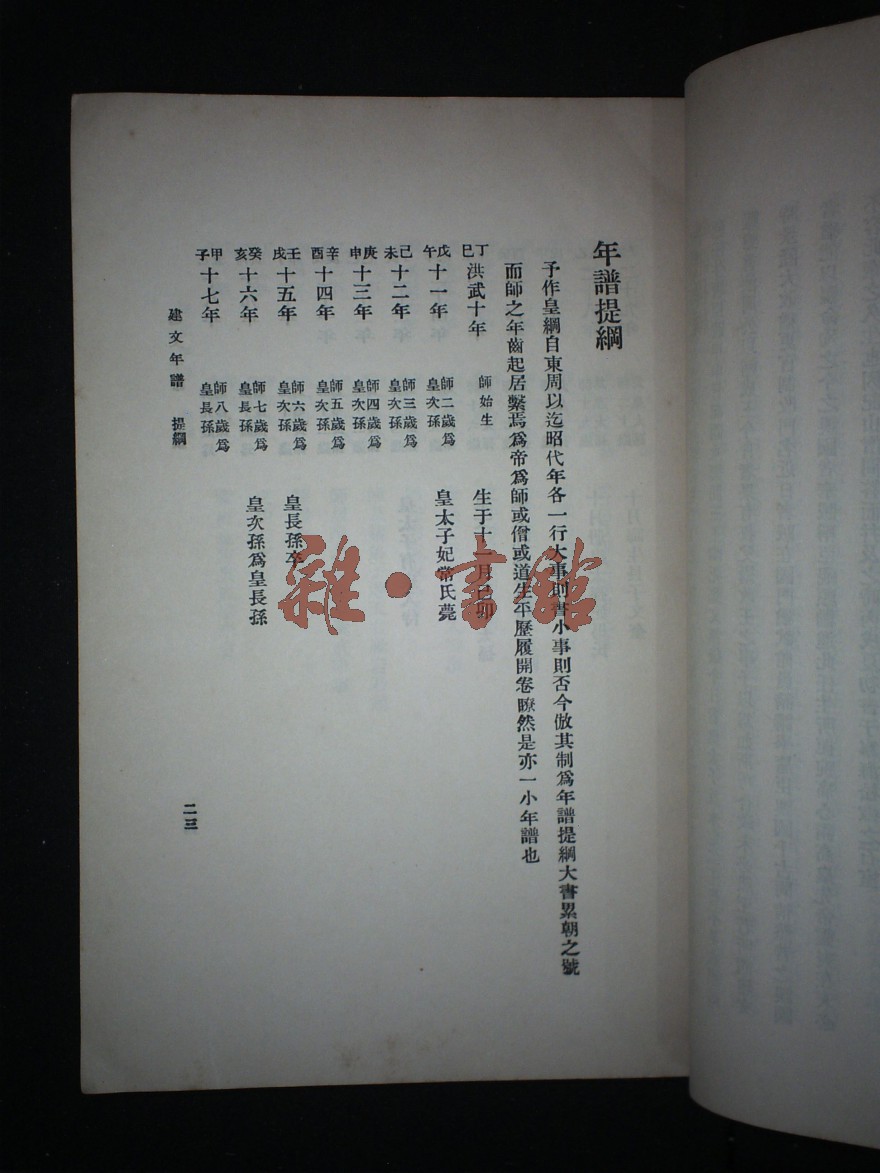 年譜提綱
予作皇綱自東周以迄昭代年各一行大事則書小事則否今倣其制爲年譜提綱大書累朝之號
而師之年齒起居繫焉爲帝爲師或僧或道生平歷履開卷瞭然是亦一小年譜也
丁巳 洪武十年 師始生 生于十一月己卯
戊午 十一年 師二歲爲皇次孫 皇太子妃常氏薨
己未 十二年 師三歲爲皇次孫
庚申 十三年 師四歲爲皇次孫
辛酉 十四年 師五歲爲皇次孫
壬戌 十五年 師六歲爲皇次孫 皇長孫卒
癸亥 十六年 師七歲爲皇長孫 皇次孫爲皇長孫
甲子 十七年 師八歲爲皇長孫
建文年譜 提綱
二三
雜·書館